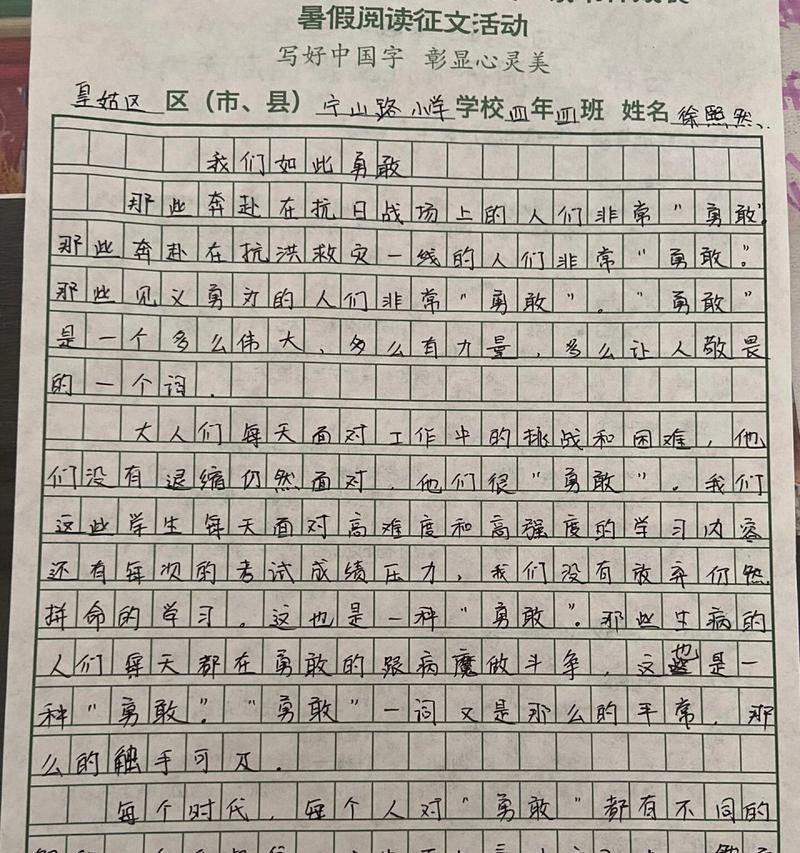 暑假阅读征文活动
写好中国字 彰显心灵美
皇姑区 区（市、县）宁山路小学 学校 四 年 四 班 姓名 徐熙然
我们如此勇敢
那些奔赴在抗日战场上的人们非常“勇敢”。
那些奔赴在抗洪救灾一线的人们非常“勇敢”。
那些见义勇为的人们非常“勇敢”。“勇敢”
是一个多么伟大、多么有力量，多么让人敬畏
的一个词．
大人们每天面对工作中的挑战和困难，他
们没有退缩仍然面对．他们很“勇敢”。我们
这些学生每天面对高难度和高强度的学习内容
还有每次的考试成绩压力，我们没有放弃仍然
拼命的学习。这也是一种“勇敢”。那些生病的
人们每天都在勇敢的跟病魔做斗争，这也是一
种“勇敢”。“勇敢”一词又是那么的平常．那
么的触手可及．
每个时代，每个人对“勇敢”都有不同的